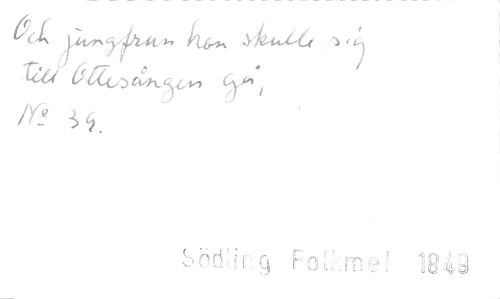 Och jungfrun hon skulle sig
till Ottesången gå,
Nº 39.
Södling Folkmel 1849